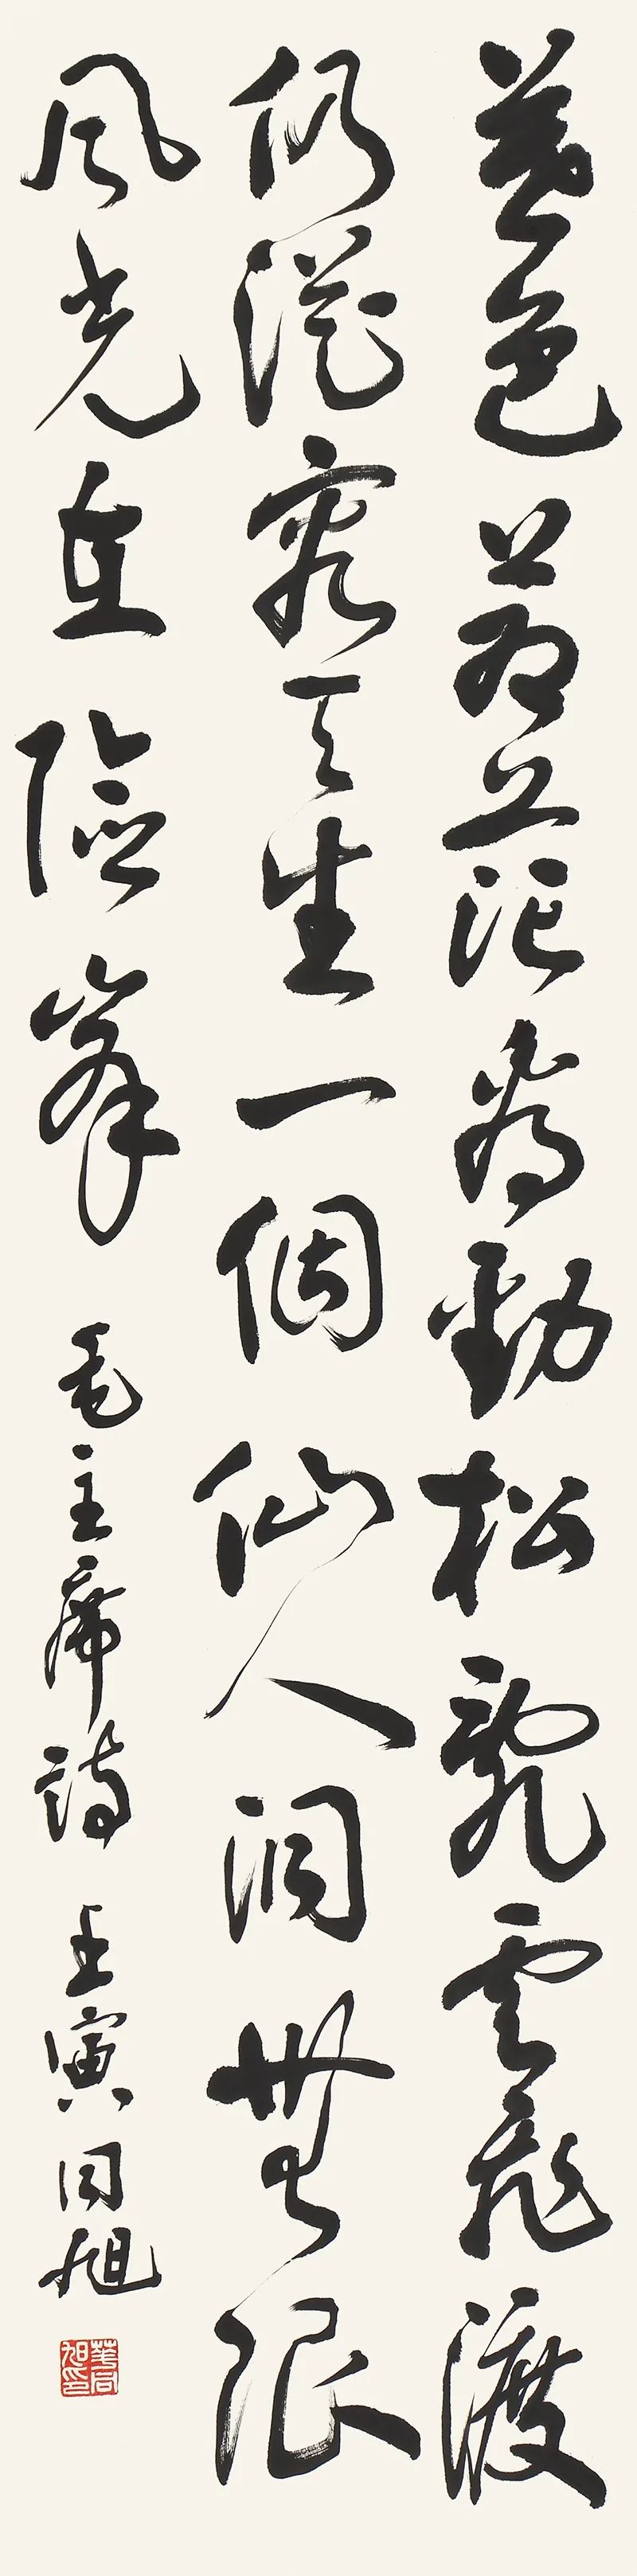 暮色蒼茫看勁松亂雲飛渡
仍從容天生一個仙人洞無限
風光在險峯 毛主席詩 壬寅同旭
華同旭印